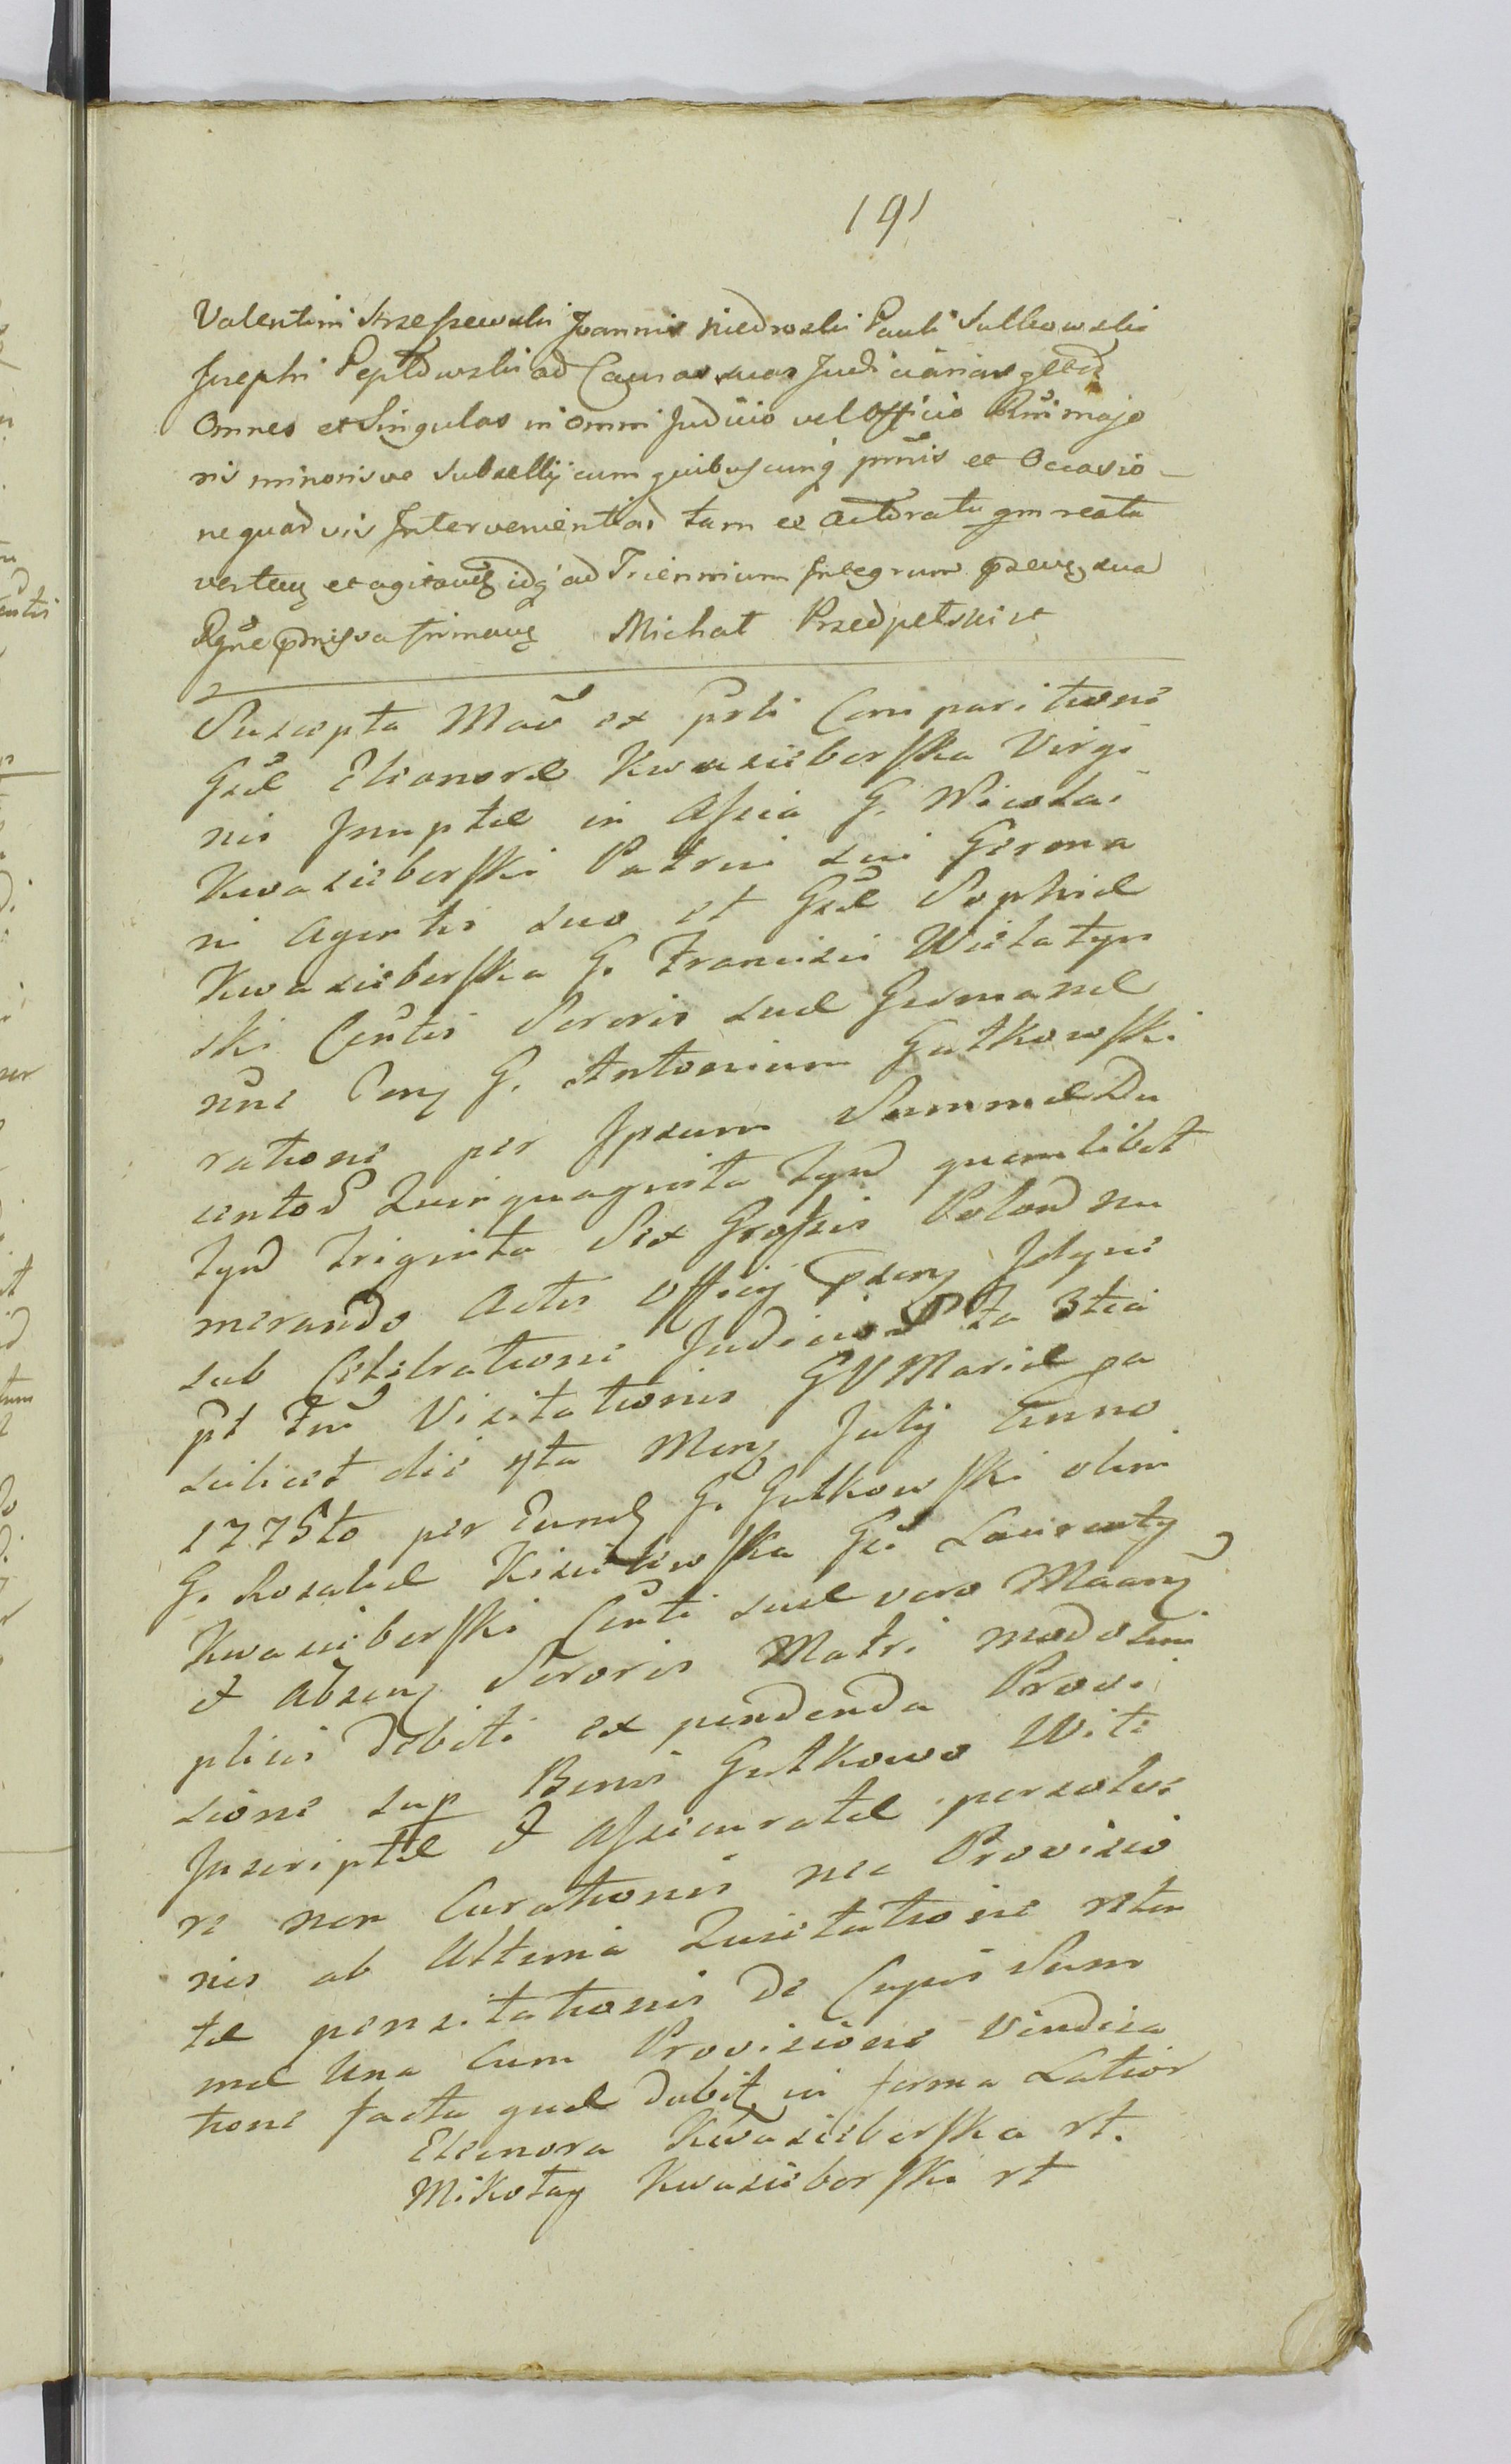 191
Valentini Strzeszewski Joannis Niedroski Pauli Sulkowski
Josephi Peptowski ad Causas suas Judiciarias
Omnes et Singulas in omni Judicio vel Officio Rni majo
ris minorisve Subsellij cum quibuscunq prnis et Occasio-
ne quadvis Intervenientias tam ex actoratu qm reatu
verten et agitan idq ad Triennium Integrum psens sua
Michał Przedpełski
Suscepta Mao ex psli Comparitione
Gsae Eleonorae Kwasieborska Virgi
nis Inuptae in Assia G. Nicolai
Kwasieborski Patrui sui Germa
ni agentis suo et Gsae Sophiae
Kwasieborska G. Francisci Wielatyn
ski Contis Sororis suae Germanae
nne Conz G. Antonium Gutkowski
ratione per Ipsum Summae Du
centos Quinquaginta Tynf quemlibet
Tynf Triginta Sex Grossis Polon nu
merando Actis Officij psenz Idque
sub Celebratione Judicior Fa 3tia
pt Fm Visitationis GV Mariae pa
scilicet die 4ta Menz Julij Anno
1775to per Eund G. Gutkowski olim
G. Rosaliae Kisielewska Gsi Laurenty
Kwasieborski Conti suae vero Maanz
et absenz Sororis Matri modo sim
plicis Debiti ex pendenda Provi
sione sup Bonis Gutkowo Wite
Inscriptae et Assicuratae persolve
re non Curationis nec Provisio
nis ab Ultima Quietatione reten
tae pensitationis De Cujus Sum
mae Una Cum Provisione Vindica
tione facta quae dabit in forma Latior
Eleonora Kwasieborska rt.
Mikołay Kwasieborski rt